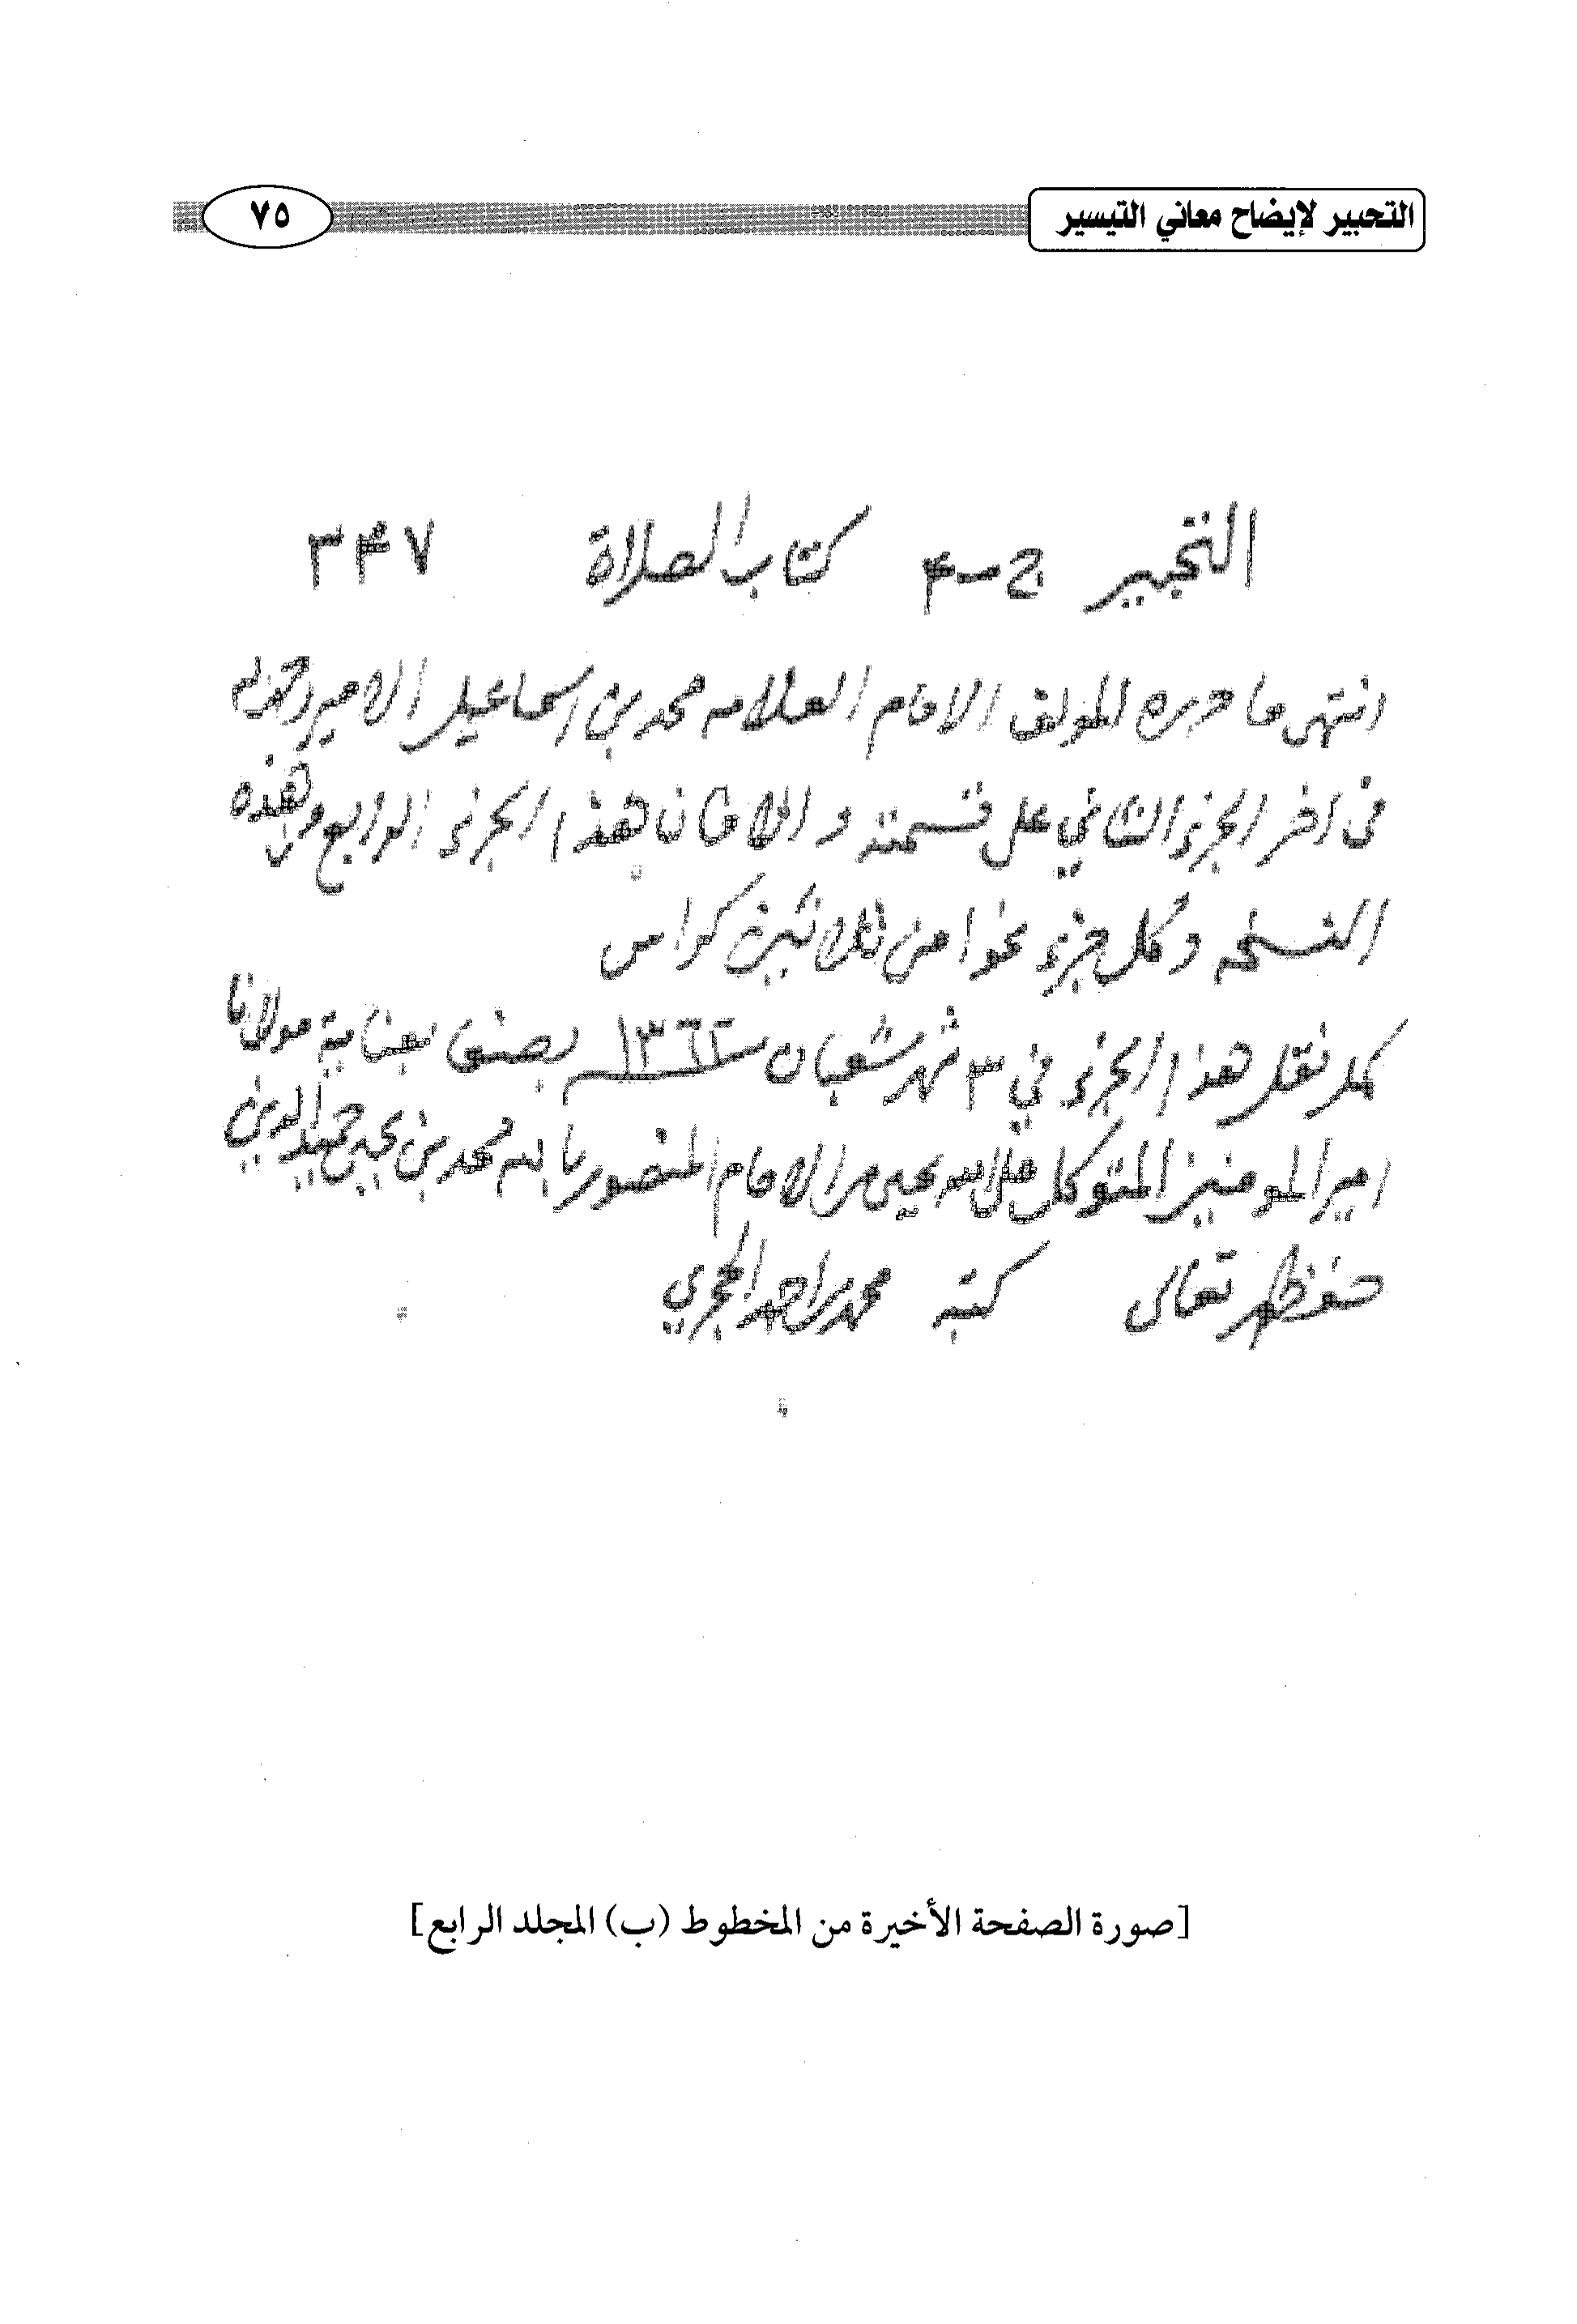 التحبير لإيضاح معاني التيسير
٧٥
التحبير ج-٤ كتاب الصلاة ٣٤٧
انتهى ما حرره المؤلف الامام العلامه محمد بن اسماعيل الامير رحمه الله
في اخر الجزء الثاني على قسمته والا فان هذا الجزء الرابع من هذه
النسخه وكل جزء نحوا من ثلاثين كراس
كمل نقل هذا الجزء في ٣ شهر شعبان سنة ١٣٦٢ بصنعا بعناية مولانا
امير المومنين المتوكل على الله يحيى بن الامام المنصور بالله محمد بن يحيى حميد الدين
حفظه تعالى كتبه محمد بن احمد الحجري
[صورة الصفحة الأخيرة من المخطوط (ب) المجلد الرابع]